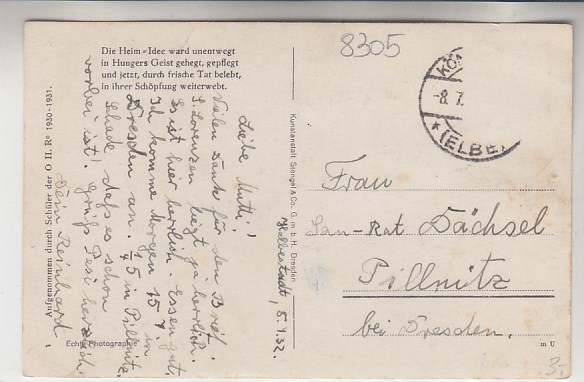 Die Heim=Idee ward unentwegt
in Hungers Geist gehegt, gepflegt
und jetzt, durch frische Tat belebt,
in ihrer Schöpfung weiterwebt.
8305
KÖN
-8.7.
* (ELBE)
Aufgenommen durch Schüler der O II. R⁸ 1930-1931.
Echte Photographie
Kunstanstalt Stengel & Co. G. m. b. H. Dresden
m U
Halberstadt, 8.7.32.
Liebe Mutti!
Vielen Dank für den Brief.
S. Lorenzen liegt ja herrlich.
Es ist hier herrlich. Essen gut.
Ich komme morgen 15 in
Dresden an. in Pillnitz.
Schade daß es schon
vorbei ist! Grüß herzlich
Dein Reinhard
Frau
San-Rat Dächsel
Pillnitz
bei Dresden.
3.-